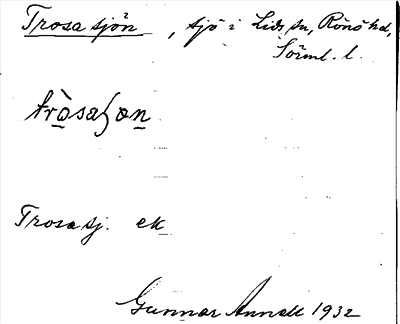 Trosasjön, sjö i Lids sn, Rönö hd,
Sörml. l.
tròsaʃo̲n̲
Trosasj. ek
Gunnar Annell 1932